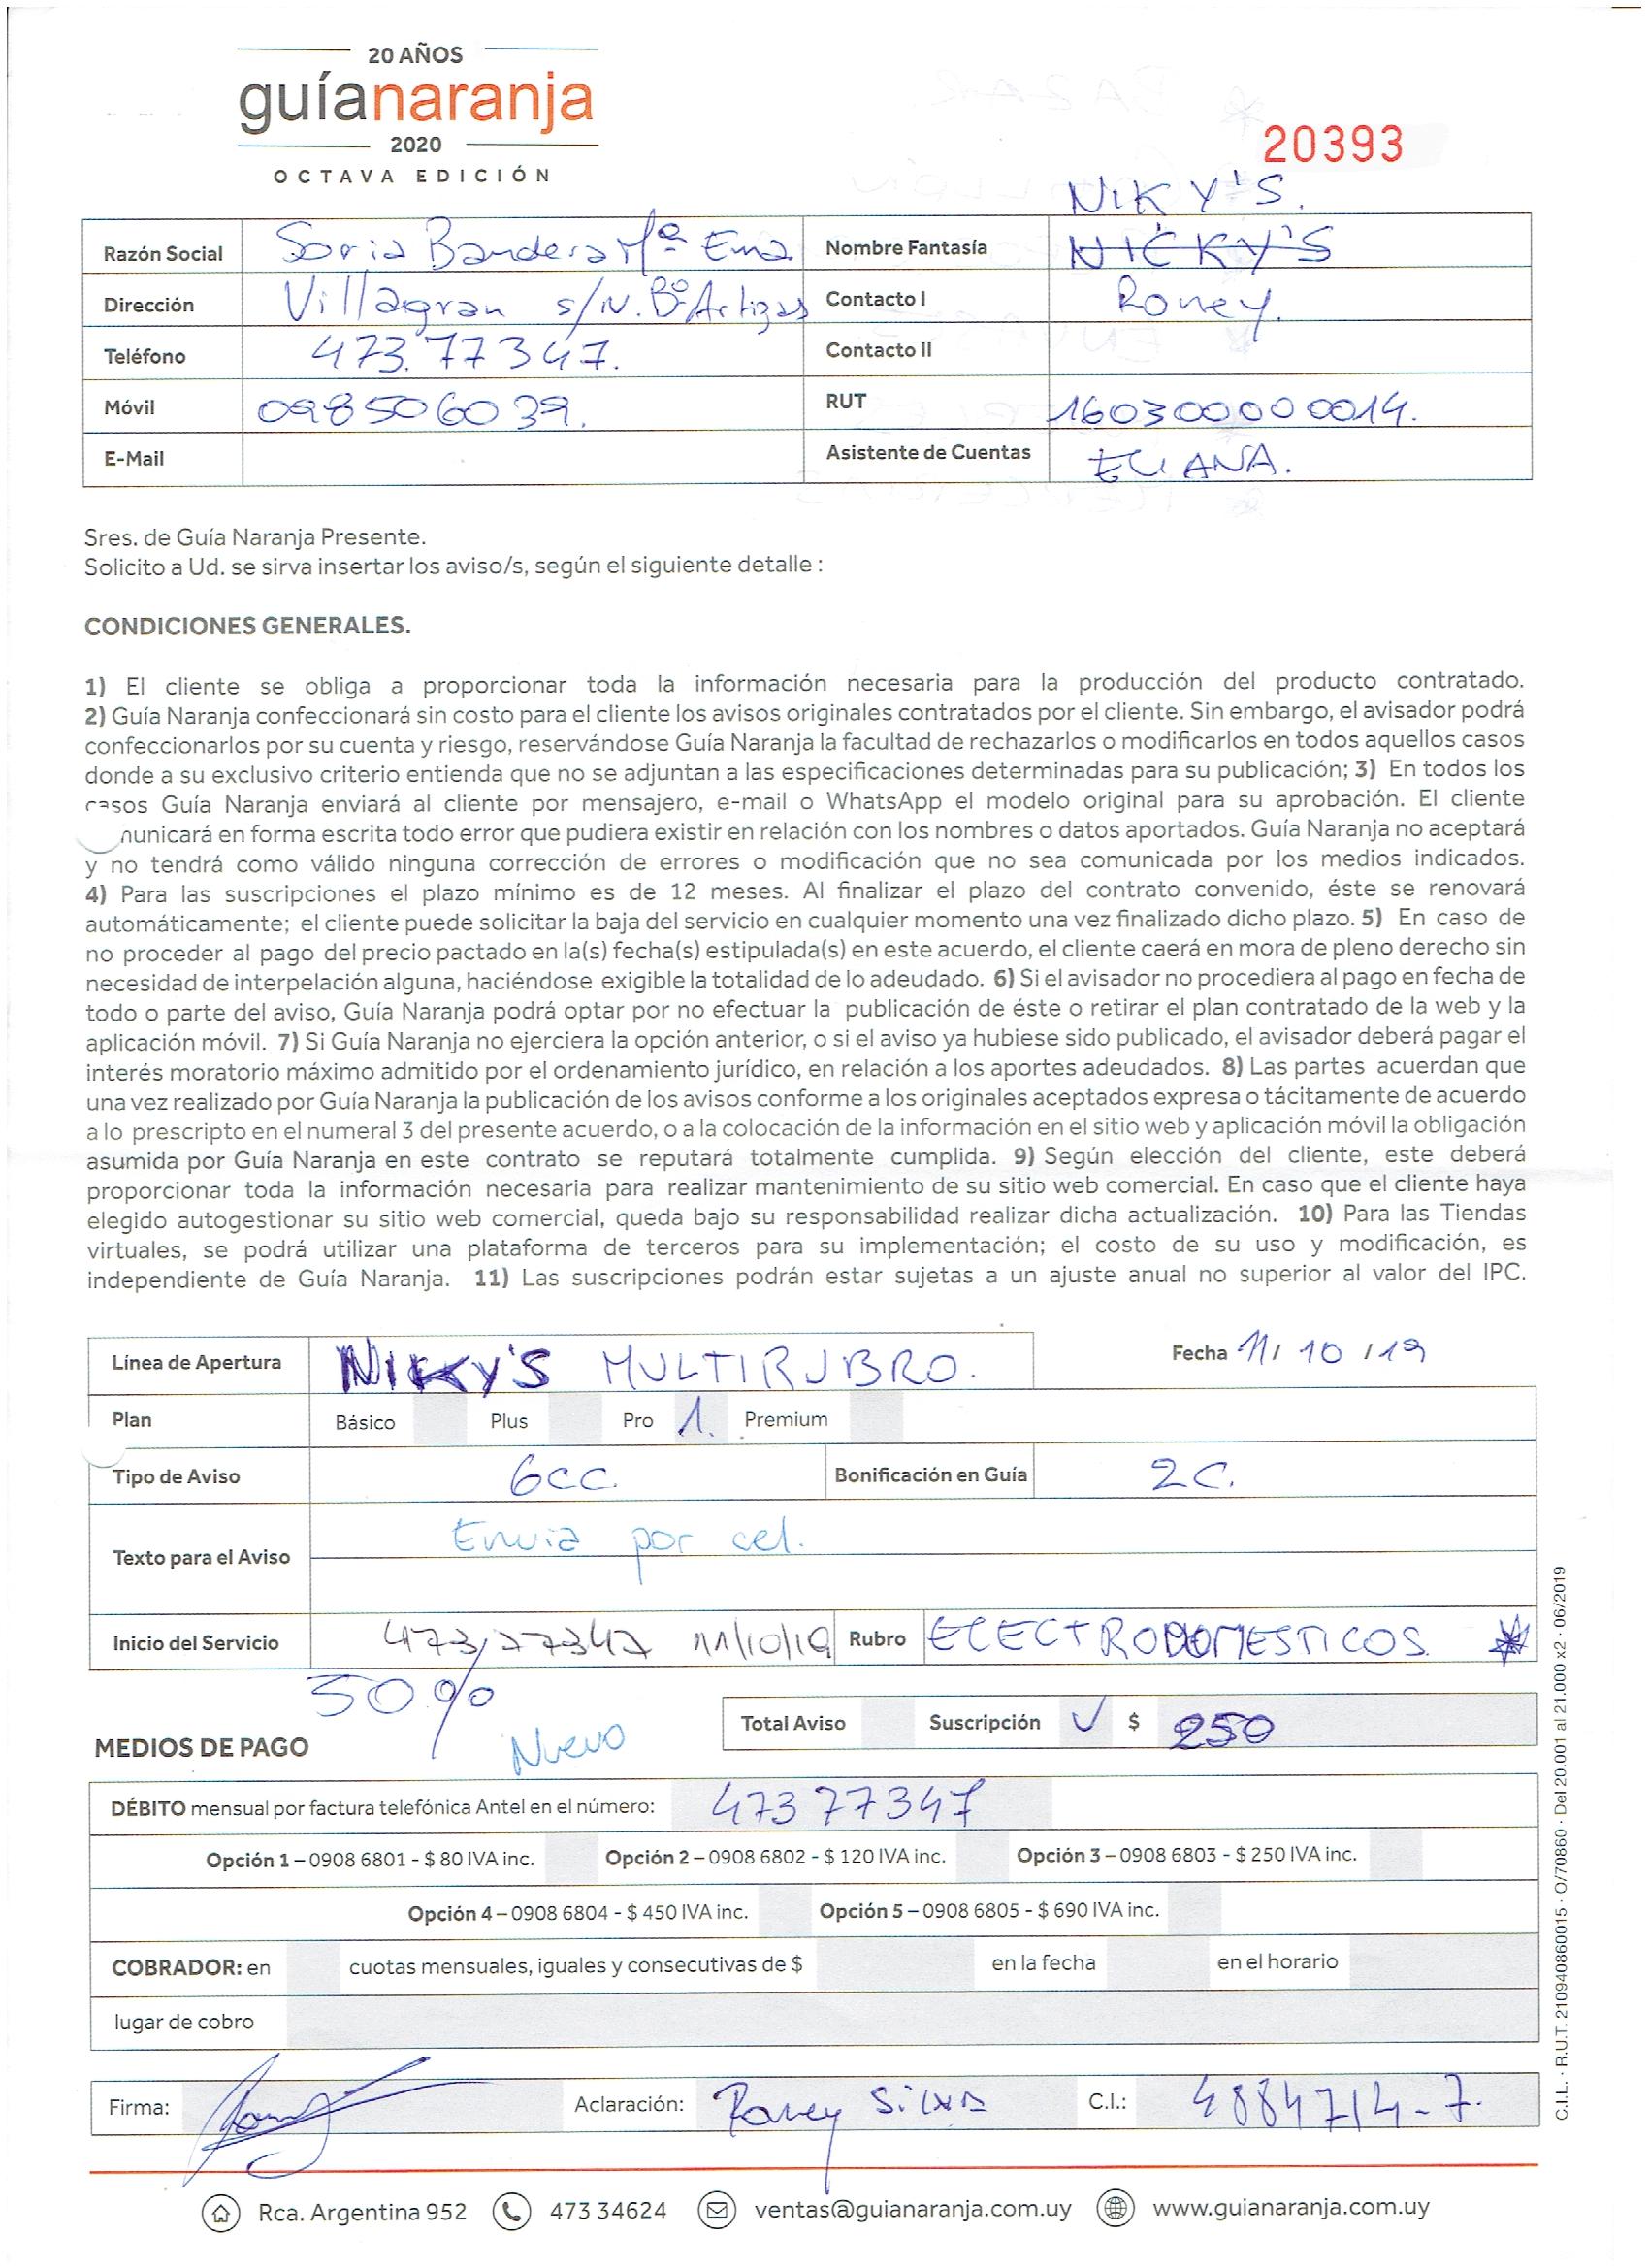 20 AÑOS
guíanaranja
2020
OCTAVA EDICIÓN
20393
NIKY'S.
Razón Social Soria Bandera Mª Ema Nombre Fantasía NICKY'S
Dirección Villagran s/N. Bº Artigas Contacto I Roney.
Teléfono 473.77347. Contacto II
Móvil 098506039. RUT 160300000014.
E-Mail Asistente de Cuentas ELIANA.
Sres. de Guía Naranja Presente.
Solicito a Ud. se sirva insertar los aviso/s, según el siguiente detalle :
CONDICIONES GENERALES.
1) El cliente se obliga a proporcionar toda la información necesaria para la producción del producto contratado.
2) Guía Naranja confeccionará sin costo para el cliente los avisos originales contratados por el cliente. Sin embargo, el avisador podrá
confeccionarlos por su cuenta y riesgo, reservándose Guía Naranja la facultad de rechazarlos o modificarlos en todos aquellos casos
donde a su exclusivo criterio entienda que no se adjuntan a las especificaciones determinadas para su publicación; 3) En todos los
casos Guía Naranja enviará al cliente por mensajero, e-mail o WhatsApp el modelo original para su aprobación. El cliente
municará en forma escrita todo error que pudiera existir en relación con los nombres o datos aportados. Guía Naranja no aceptará
y no tendrá como válido ninguna corrección de errores o modificación que no sea comunicada por los medios indicados.
4) Para las suscripciones el plazo mínimo es de 12 meses. Al finalizar el plazo del contrato convenido, éste se renovará
automáticamente; el cliente puede solicitar la baja del servicio en cualquier momento una vez finalizado dicho plazo. 5) En caso de
no proceder al pago del precio pactado en la(s) fecha(s) estipulada(s) en este acuerdo, el cliente caerá en mora de pleno derecho sin
necesidad de interpelación alguna, haciéndose exigible la totalidad de lo adeudado. 6) Si el avisador no procediera al pago en fecha de
todo o parte del aviso, Guía Naranja podrá optar por no efectuar la publicación de éste o retirar el plan contratado de la web y la
aplicación móvil. 7) Si Guía Naranja no ejerciera la opción anterior, o si el aviso ya hubiese sido publicado, el avisador deberá pagar el
interés moratorio máximo admitido por el ordenamiento jurídico, en relación a los aportes adeudados. 8) Las partes acuerdan que
una vez realizado por Guía Naranja la publicación de los avisos conforme a los originales aceptados expresa o tácitamente de acuerdo
a lo prescripto en el numeral 3 del presente acuerdo, o a la colocación de la información en el sitio web y aplicación móvil la obligación
asumida por Guía Naranja en este contrato se reputará totalmente cumplida. 9) Según elección del cliente, este deberá
proporcionar toda la información necesaria para realizar mantenimiento de su sitio web comercial. En caso que el cliente haya
elegido autogestionar su sitio web comercial, queda bajo su responsabilidad realizar dicha actualización. 10) Para las Tiendas
virtuales, se podrá utilizar una plataforma de terceros para su implementación; el costo de su uso y modificación, es
independiente de Guía Naranja. 11) Las suscripciones podrán estar sujetas a un ajuste anual no superior al valor del IPC.
Línea de Apertura NIKY'S MULTIRUBRO. Fecha 11/10/19
Plan Básico Plus Pro 1. Premium
Tipo de Aviso 6CC. Bonificación en Guía 2C.
Texto para el Aviso Envia por cel.
Inicio del Servicio 473,77347 11/10/19 Rubro ELECTRODOMESTICOS *
50%
Nuevo
Total Aviso Suscripción ✓ $ 250
MEDIOS DE PAGO
DÉBITO mensual por factura telefónica Antel en el número: 47377347
Opción 1 – 0908 6801 - $ 80 IVA inc. Opción 2 – 0908 6802 - $ 120 IVA inc. Opción 3 – 0908 6803 - $ 250 IVA inc.
Opción 4 – 0908 6804 - $ 450 IVA inc. Opción 5 – 0908 6805 - $ 690 IVA inc.
COBRADOR: en cuotas mensuales, iguales y consecutivas de $ en la fecha en el horario
lugar de cobro
Firma: Aclaración: Roney Silva C.I.: 4884714-7.
Rca. Argentina 952 473 34624 ventas@guianaranja.com.uy www.guianaranja.com.uy
C.I.L. · R.U.T. 210940860015 · O/70860 · Del 20.001 al 21.000 x2 · 06/2019